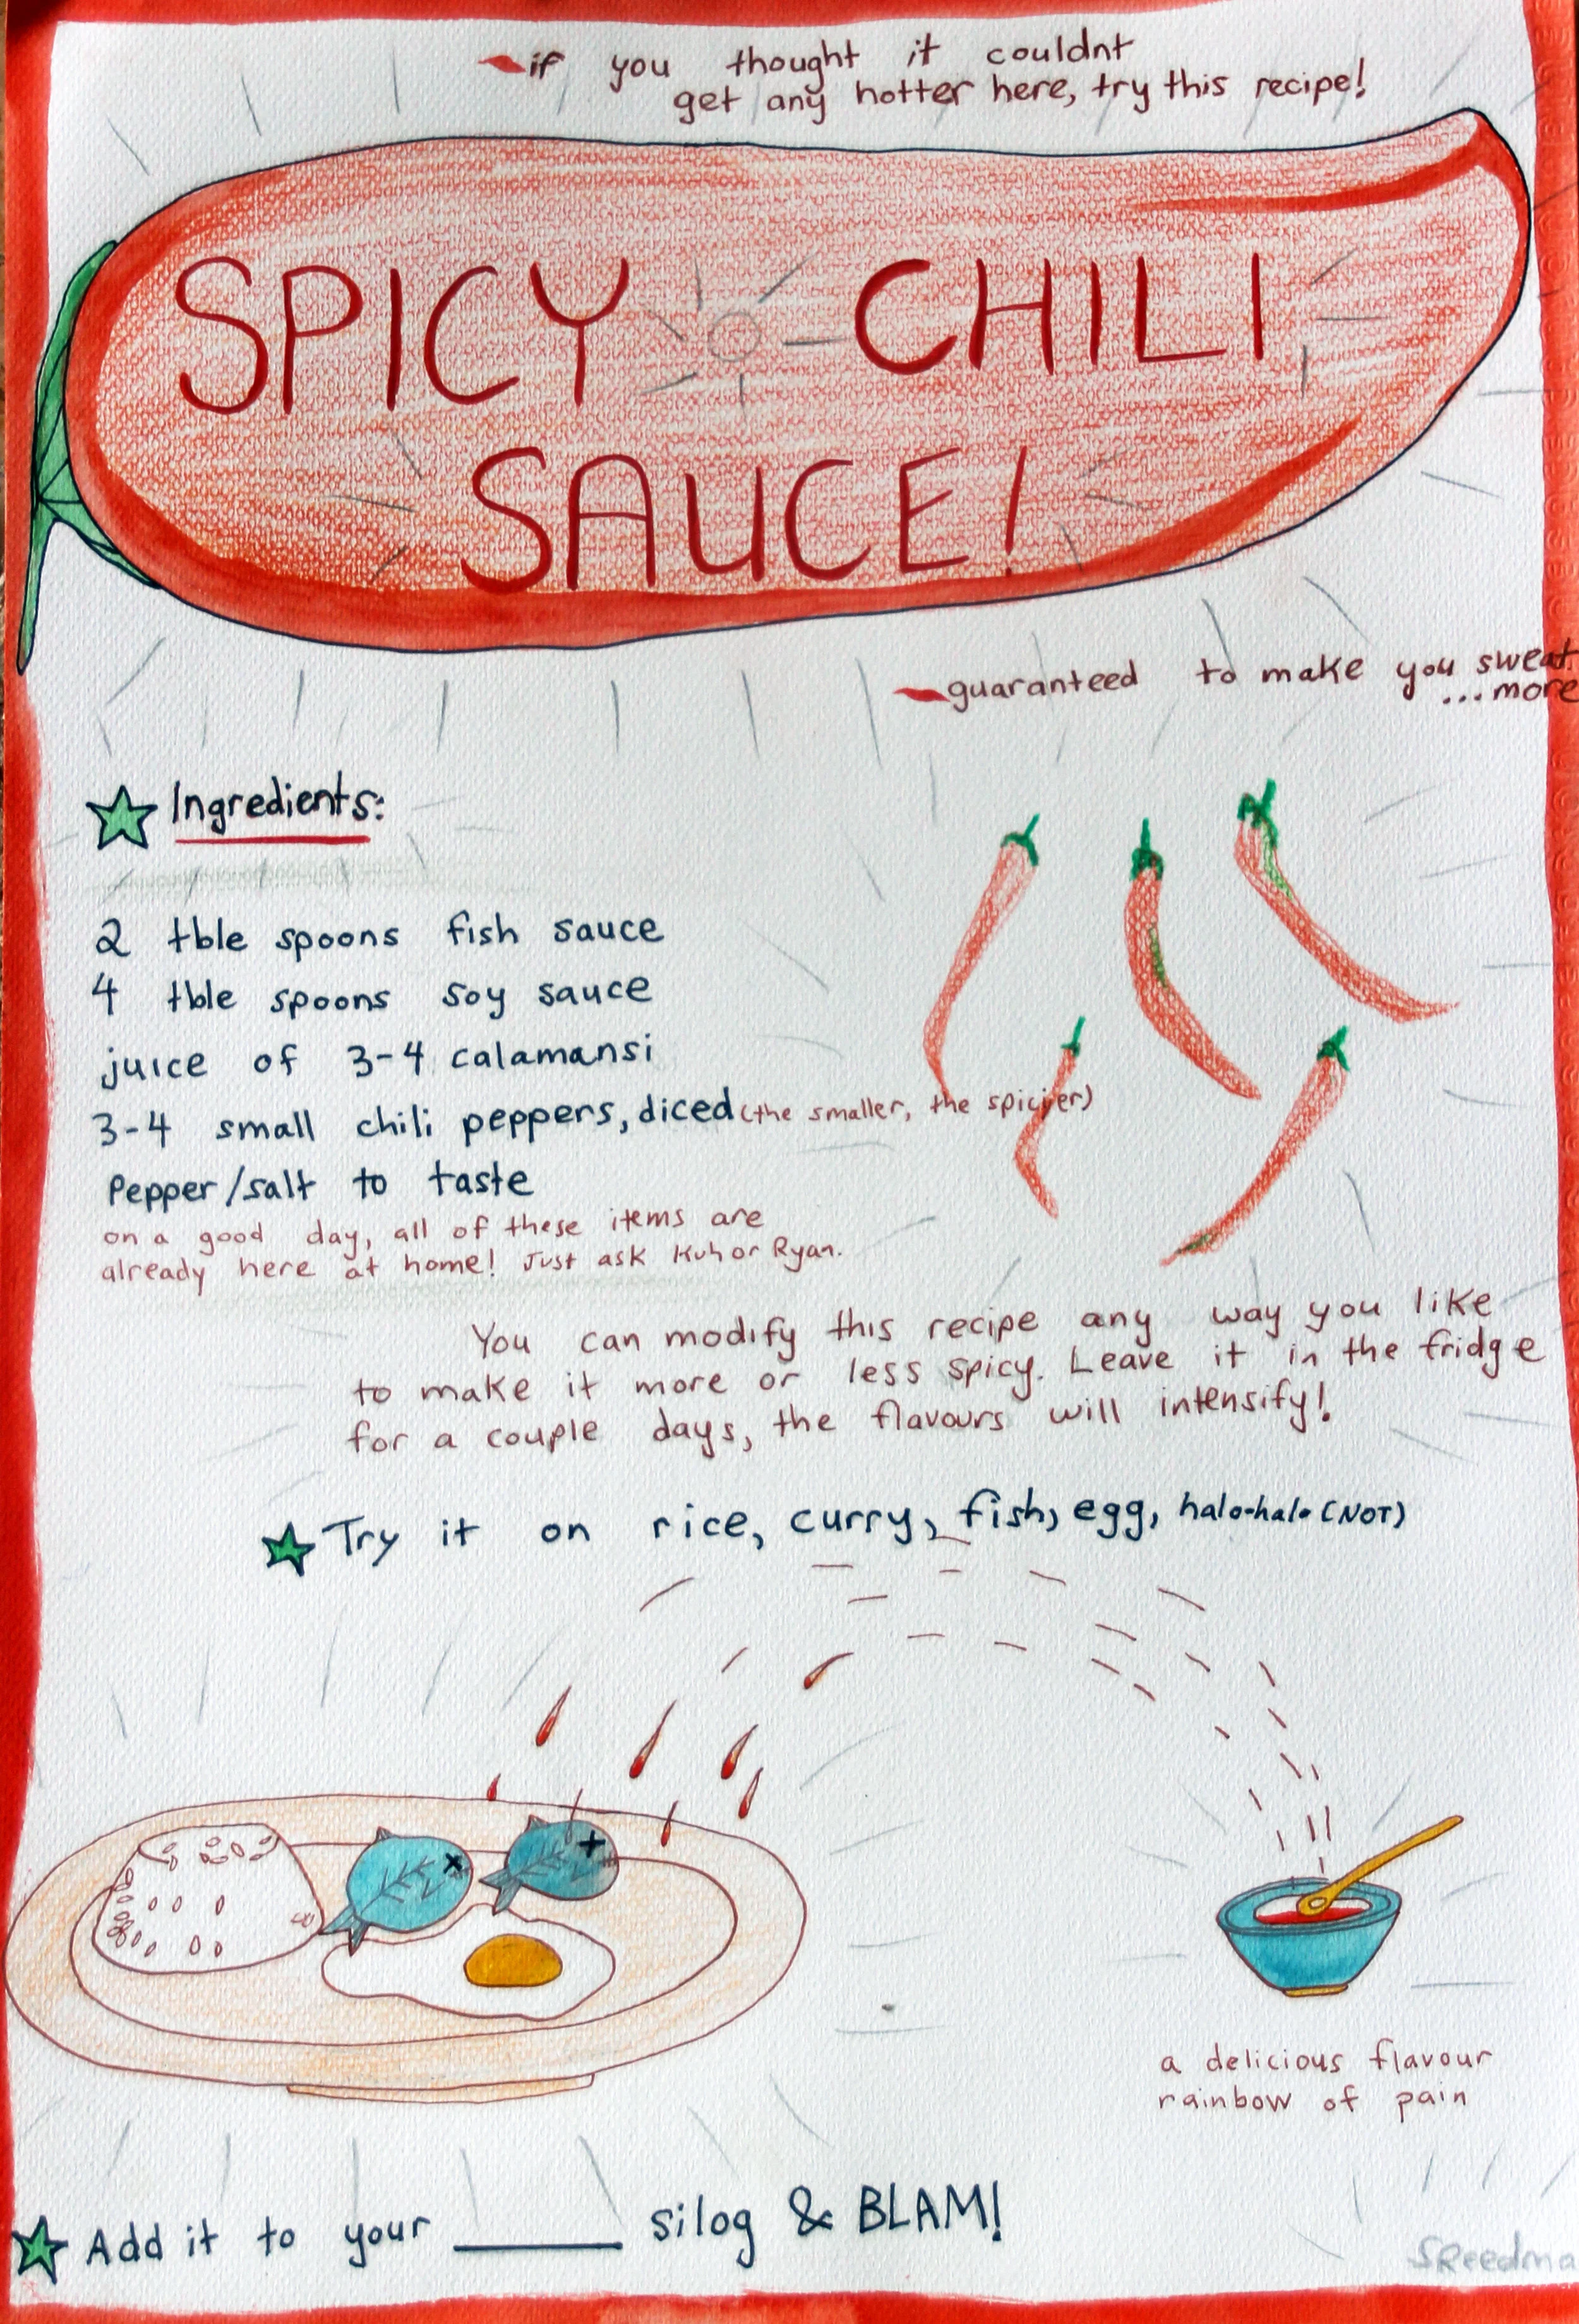 if you thought it couldnt
get any hotter here, try this recipe!
SPICY CHILI
SAUCE!
guaranteed to make you sweat
...more
Ingredients:
2 tble spoons fish sauce
4 tble spoons soy sauce
juice of 3-4 calamansi
3-4 small chili peppers, diced (the smaller, the spicier)
Pepper/salt to taste
on a good day, all of these items are
already here at home! Just ask Kuh or Ryan.
You can modify this recipe any way you like
to make it more or less spicy. Leave it in the fridge
for a couple days, the flavours will intensify!
Try it on rice, curry, fish, egg, halo-halo (NOT)
a delicious flavour
rainbow of pain
Add it to your ____ silog & BLAM!
SReedma